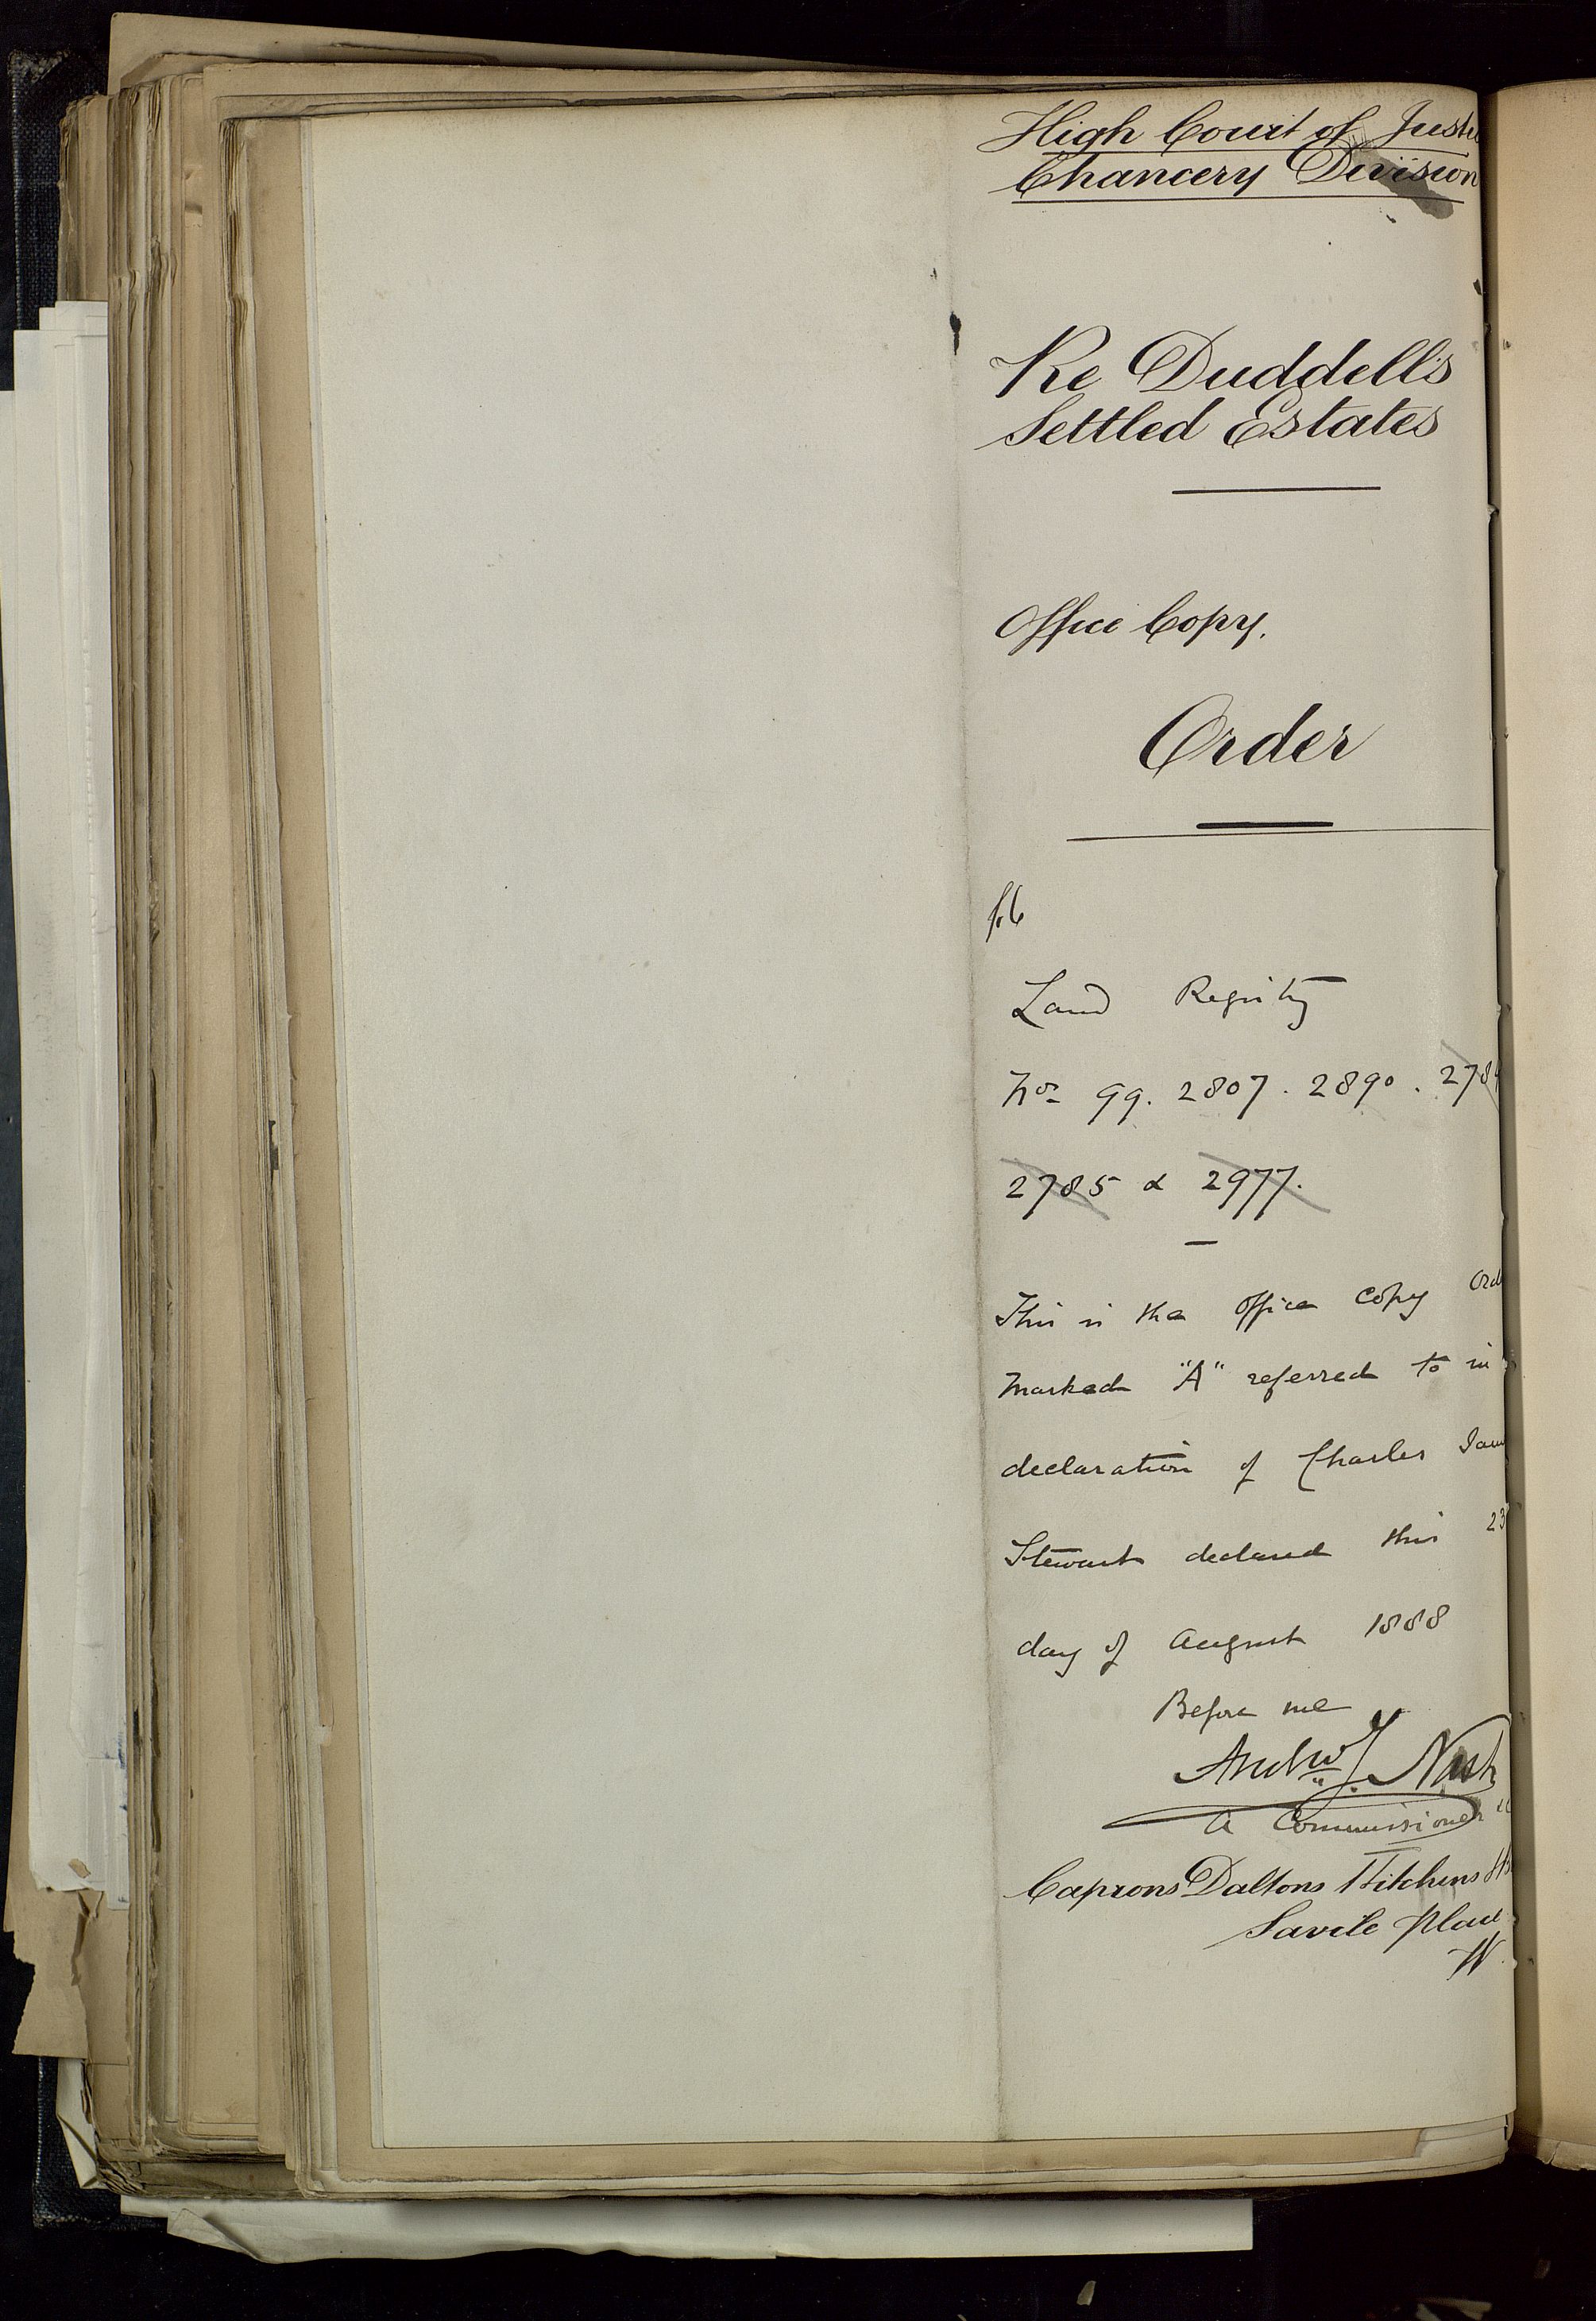 High Court of Justi
Chancery Division
Re Duddell's
Settled Estates
Office Copy.
Order
Land Registry
Nos 99. 2807. 2890. 2784
2785 & 2977.
This is the office copy Ord
marked "A" referred to in
declaration of Charles Jam
Stewart declared this 23
day of August 1888
Before me
Andw J. Nash
a Commissioner &c
Caprons Daltons Hitchins &
Savile Place
W.